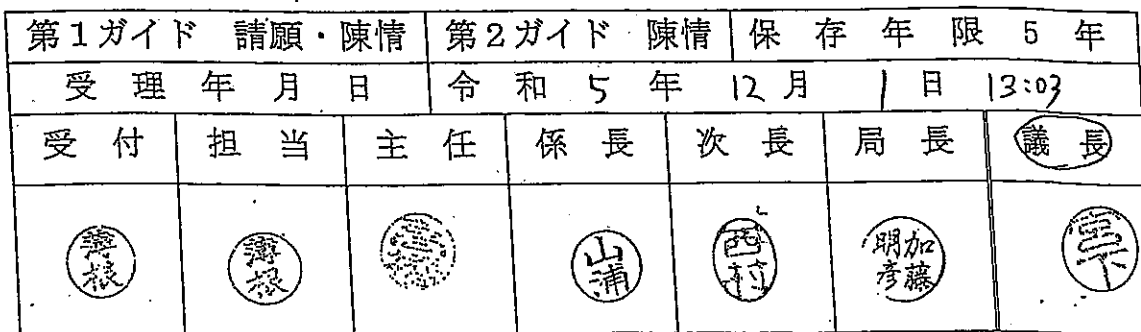 第1ガイド 請願・陳情 第2ガイド 陳情 保存年限 5年
受理年月日 令和5年12月1日 13:03
受付 担当 主任 係長 次長 局長 議長
薄根 薄根 山浦 西村 加藤明彦